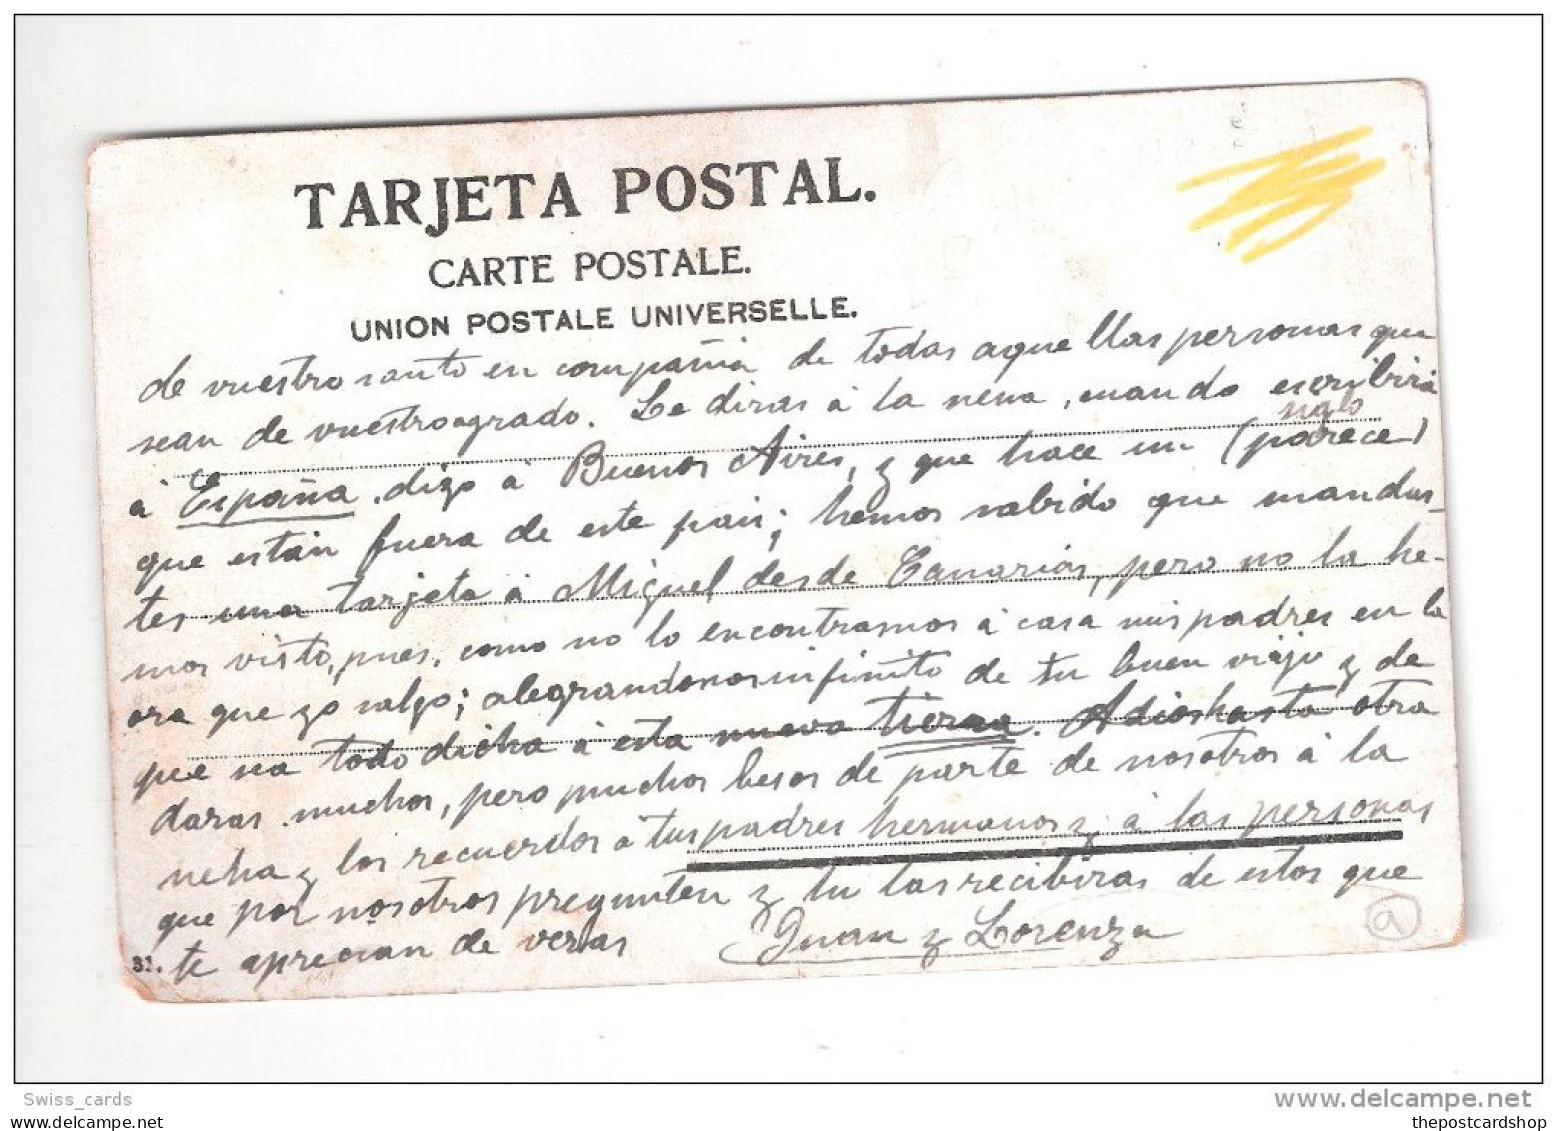 TARJETA POSTAL.
CARTE POSTALE.
UNION POSTALE UNIVERSELLE.
de vuestro santo en compañia de todas aquellas personas que
sean de vuestro agrado. Le diras á la nena, cuando escribirá
á España, digo á Buenos Aires, y que hace un siglo (parece)
que están fuera de este pais; hemos sabido que mandas-
tes una tarjeta á Miguel desde Canarias, pero no la he-
mos visto, pues, como no lo encontramos á casa mis padres en la
ora que yo salgo; alegrandonos infinito de tu buen viaje y de
que na todo dicha á esta nueva tierra. Adios hasta otra
daras muchos, pero muchos besos de parte de nosotros á la
neha y los recuerdos a tus padres hermanos y á las personas
que por nosotros pregunten y tu las recibiras de estos que
te aprecian de veras Juan y Lorenza
31.
a
Swiss_cards
www.delcampe.net
thepostcardshop
thepostcardshop